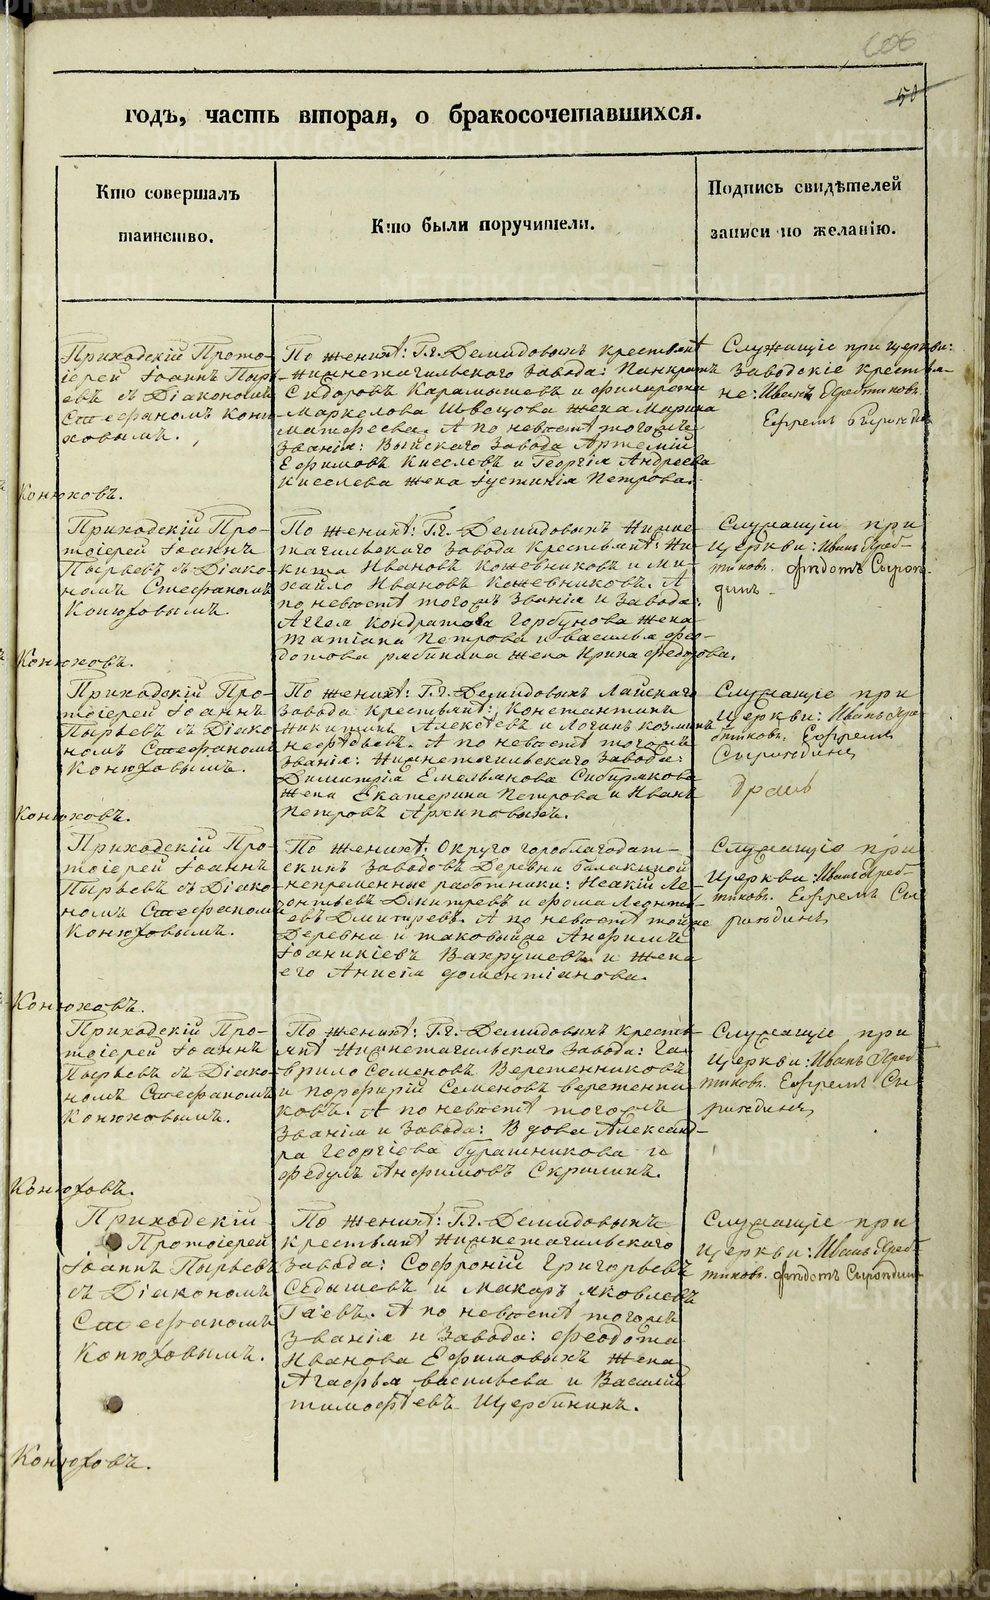 606
50
годъ, часть вторая, о бракосочетавшихся.
Кто совершалъ
таинство.
Кто были поручители.
Подпись свидѣтелей
записи по желанію.
Приходскій Прото-
іерей Іоаннъ Пырь-
евъ съ Діакономъ
Стефаномъ Коню-
ховымъ.
Конюховъ.
По женихѣ: Г.г. Демидовыхъ крестьянѣ
Нижнетагильскаго завода: Панкратъ
Сидоровъ Карамышевъ и Филарета
Маркелова Швецова жена Марина
Матфеева. А по невѣстѣ тогожъ
званія: Выйскаго завода Артемій
Ефимовъ Киселевъ и Георгія Андреева
Киселева жена Іустинія Петрова.
Служащіе при церкви:
Заводскіе крестья-
не: Иванъ
Ефремъ
Приходскій Про-
тоіерей Іоаннъ
Пырьевъ съ Діако-
номъ Стефаномъ
Конюховымъ.
Конюховъ.
По женихѣ: Г.г. Демидовыхъ Нижне-
тагильскаго завода крестьянѣ: Ни-
кита Ивановъ Кожевниковъ и Ми-
хайло Ивановъ Кожевниковъ. А
по невѣстѣ тогожъ званія и завода:
Аггея Кондратова Горбунова жена
Татіана Петрова и Василья Фео-
дотова Рябинина жена Ирина Федорова.
Служащіи при
церкви: Иванъ
Федотъ Сырон-
динъ
Приходскій Про-
тоіерей Іоаннъ
Пырьевъ съ Діако-
номъ Стефаномъ
Конюховымъ.
Конюховъ.
По женихѣ: Г.г. Демидовыхъ Лайскаго
завода крестьянѣ: Константинъ
Никитинъ Алексѣевъ и Логинъ Козминъ
А по невѣстѣ тогожъ
званія: Нижнетагильскаго завода:
Димитрія Емельянова Сибирякова
жена Екатерина Петрова и Иванъ
Петровъ Архиповыхъ.
Служащіе при
церкви: Иванъ
Ефремъ
Приходскій Про-
тоіерей Іоаннъ
Пырьевъ съ Діако-
номъ Стефаномъ
Конюховымъ.
Конюховъ.
По женихѣ: Округа Гороблагодат-
скихъ заводовъ Деревни Балакиной
непременные работники: Исакій Ле-
онтьевъ Дмитревъ и Фома Леонть-
евъ Дмитревъ. А по невѣстѣ тойже
Деревни и таковыйже Анфимъ
Іоаникіевъ Вахрушевъ и жена
его Анисія Доментіанова.
Служащіе при
церкви: Иванъ
Ефремъ Сы-
Приходскій Про-
тоіерей Іоаннъ
Пырьевъ съ Діако-
номъ Стефаномъ
Конюховымъ.
Конюховъ.
По женихѣ: Г.г. Демидовыхъ кресть-
янѣ Нижнетагильскаго завода: Га-
врило Семеновъ Веретенниковъ
и Порфирій Семеновъ Веретенни-
ковъ. А по невѣстѣ тогожъ
званія и завода: Вдова Александ-
ра Георгіева Бурашникова и
Федулъ Анфимовъ Скрипинъ.
Служащіе при
церкви: Иванъ
Ефремъ Сы-
Приходскій
Протоіерей
Іоаннъ Пырьевъ
съ Діакономъ
Стефаномъ
Конюховымъ.
Конюховъ.
По женихѣ: Г.г. Демидовыхъ
крестьянѣ Нижнетагильскаго
завода: Софроній Григорьевъ
Сѣдышевъ и Макаръ Яковлевъ
Гаевъ. А по невѣстѣ тогожъ
званія и завода: Феодота
Иванова Ефимовыхъ жена
Агафья Васильева и Василій
Тимофѣевъ Щербининъ.
Служащіе при
церкви: Иванъ
Федотъ Сырондинъ
METRIKI.GASO-URAL.RU